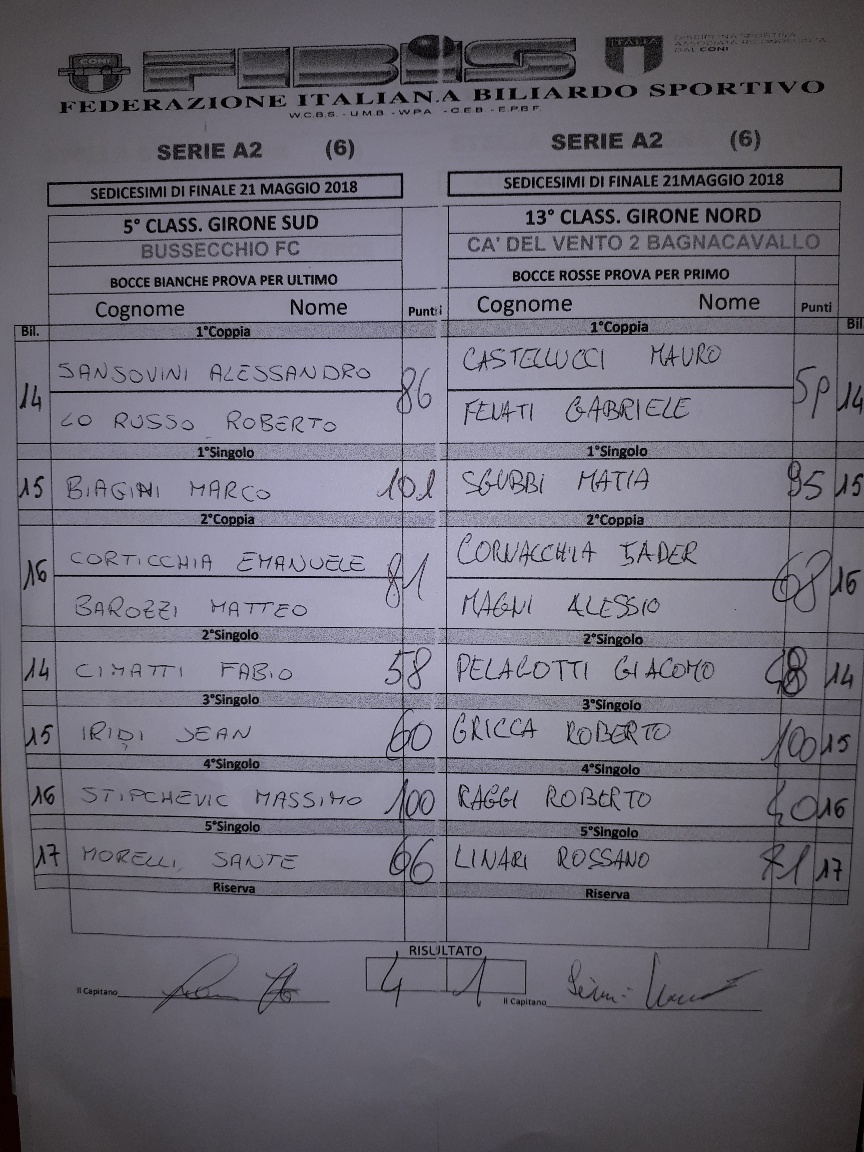 CONI FIBiS ITALIA DISCIPLINA SPORTIVA
ASSOCIATA RICONOSCIUTA
DAL CONI
FEDERAZIONE ITALIANA BILIARDO SPORTIVO
W.C.B.S. - U.M.B - W.P.A. - C.E.B. - E.P.B.F.
SERIE A2 (6) SERIE A2 (6)
SEDICESIMI DI FINALE 21 MAGGIO 2018 SEDICESIMI DI FINALE 21MAGGIO 2018
5° CLASS. GIRONE SUD 13° CLASS. GIRONE NORD
BUSSECCHIO FC CA' DEL VENTO 2 BAGNACAVALLO
BOCCE BIANCHE PROVA PER ULTIMO BOCCE ROSSE PROVA PER PRIMO
Cognome Nome Punti Cognome Nome Punti
Bil. 1°Coppia 1°Coppia Bil
14 SANSOVINI ALESSANDRO 86 CASTELLUCCI MAURO 14
LO RUSSO ROBERTO FENATI GABRIELE
1°Singolo 1°Singolo
15 BIAGINI MARCO 101 SGUBBI MATIA 95 15
2°Coppia 2°Coppia
16 CORTICCHIA EMANUELE 81 CORNACCHIA JADER 68 16
BAROZZI MATTEO MAGNI ALESSIO
2°Singolo 2°Singolo
14 CIMATTI FABIO 58 PELACOTTI GIACOMO 48 14
3°Singolo 3°Singolo
15 IRIDI JEAN 60 GRICCA ROBERTO 100 15
4°Singolo 4°Singolo
16 STIPCHEVIC MASSIMO 100 RAGGI ROBERTO 40 16
5°Singolo 5°Singolo
17 MORELLI SANTE 66 LINARI ROSSANO 71 17
Riserva Riserva
RISULTATO
Il Capitano 4 1 Il Capitano